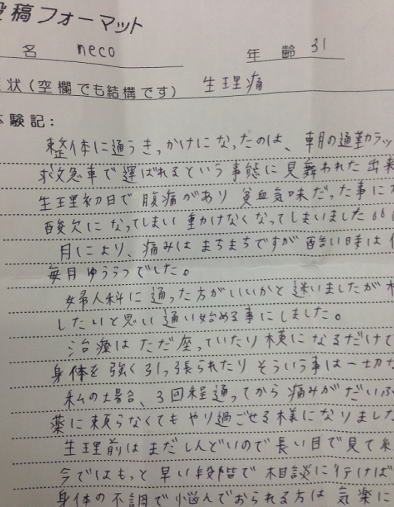 投稿フォーマット
名 neco 年齢 31
状(空欄でも結構です) 生理痛
体験記:
整体に通うきっかけになったのは、朝の通勤ラッ
救急車で運ばれるという事態に見舞われた出来
生理初日で腹痛があり貧血気味だった事に
酸欠になってしまい動かなくなってしまいました
月により、痛みはまちまちですが酷い時は
毎月ゆううつでした。
婦人科に通った方がいいかと迷いましたが
したいと思い通い始める事にしました。
治療はただ座っていたり横になるだけで
身体を強く引っ張られたりそういう事は一切な
私の場合、3回程通ってから痛みがだいぶ
薬に頼らなくてもやり過ごせる様になりました
生理前はまだしんどいので長い目で見て
今ではもっと早い段階で相談に行けば
身体の不調で悩んでおられる方は気楽に